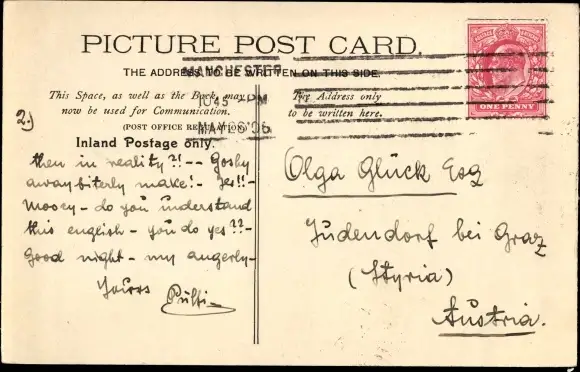 PICTURE POST CARD.
THE ADDRESS TO BE WRITTEN ON THIS SIDE.
MANCHESTER
10 45 PM
MAY 96
This Space, as well as the Back, may
now be used for Communication.
(POST OFFICE REGULATION)
Inland Postage only.
The Address only
to be written here.
ONE PENNY
2.)
then in reality?! -- Goshy
away biterly make! - Yes!! -
Mooey - do you understand
this english - you do yes?? -
Good night - my angerly -
Yours
Pülfi -
Olga Glück Esq
Judendorf bei Graz
(Styria)
Austria.